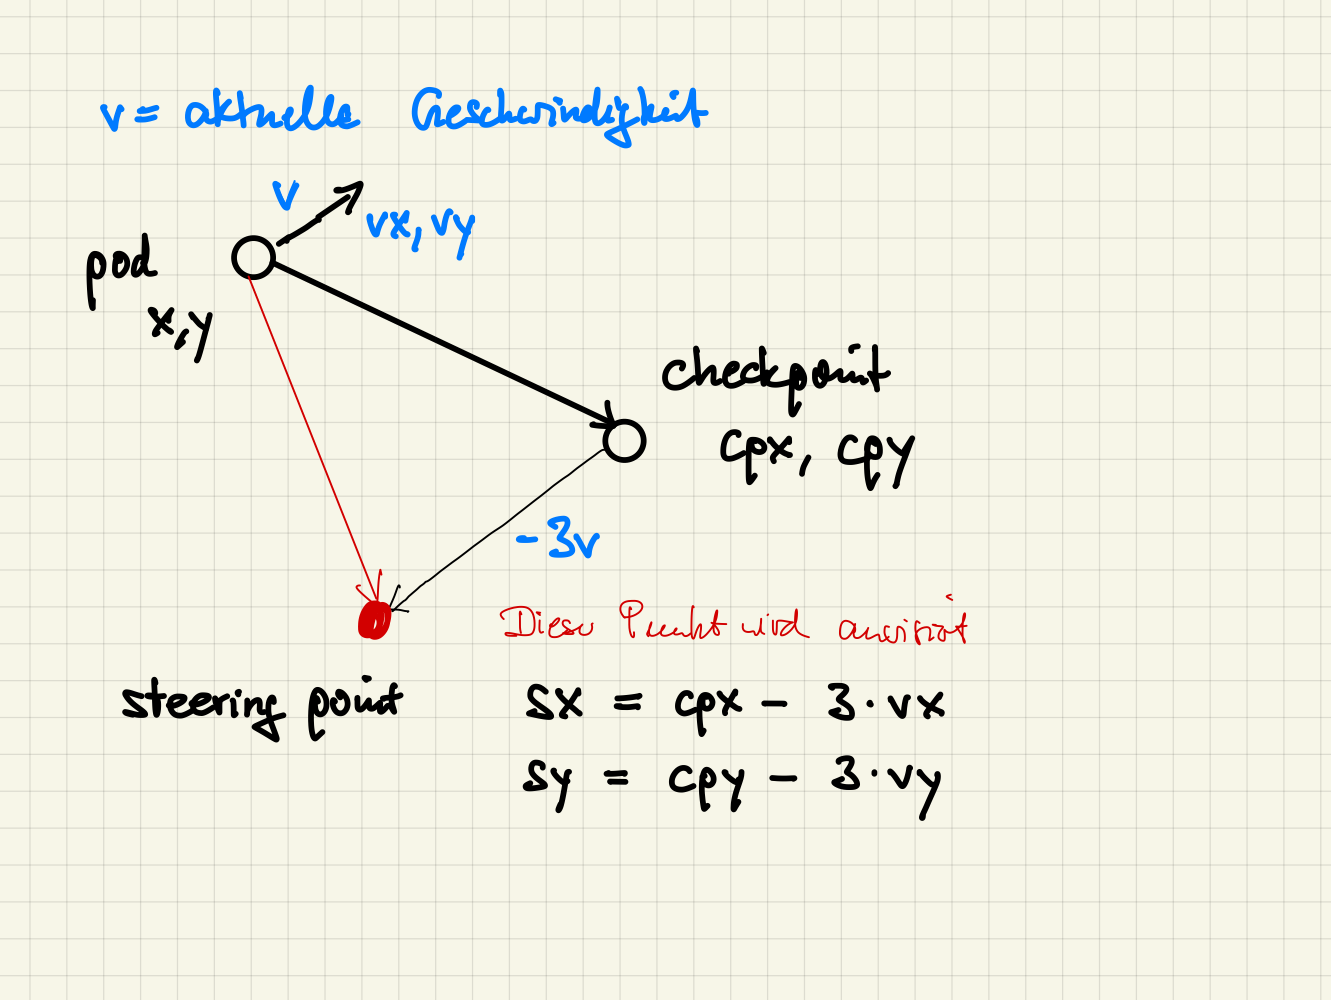 v = aktuelle Geschwindigkeit
v
vx, vy
pod
x,y
checkpoint
cpx, cpy
-3v
Dieser Punkt wird anvisiert
steering point
sx = cpx - 3 · vx
sy = cpy - 3 · vy